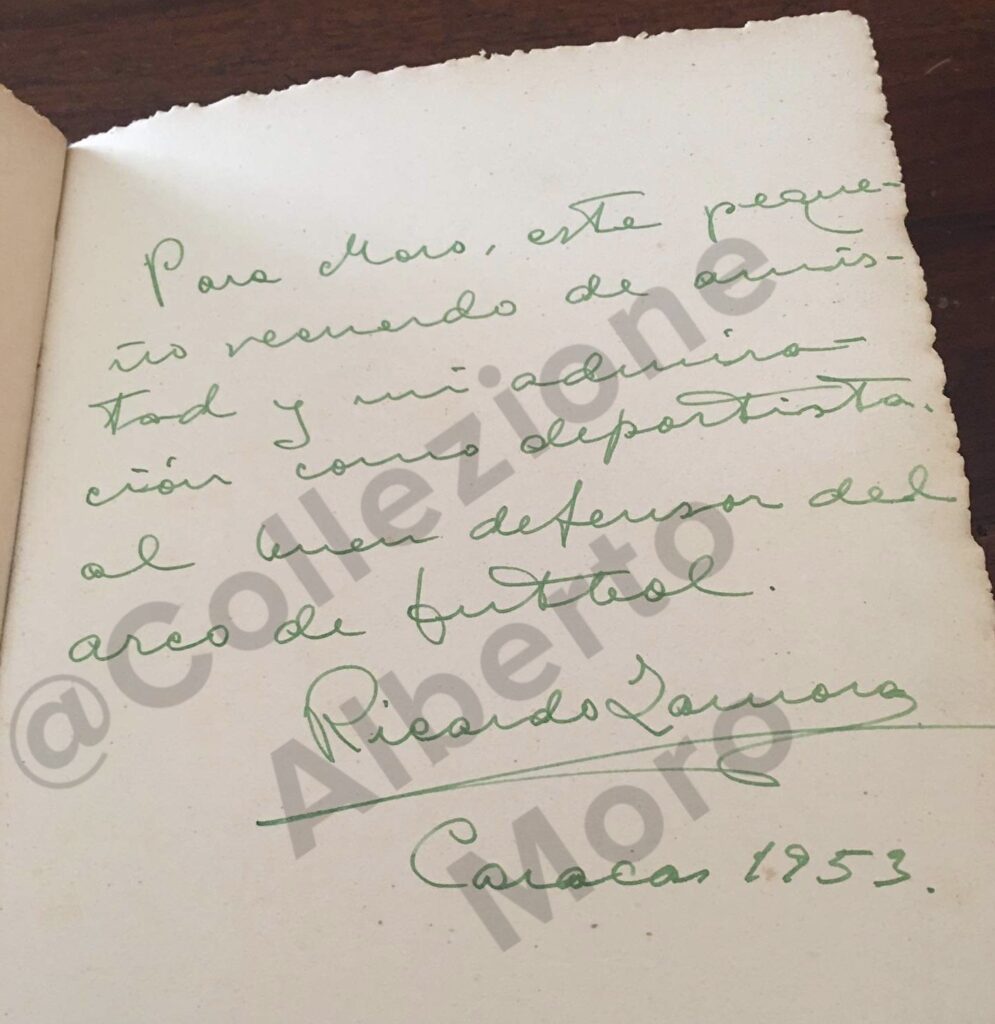 Para Moro, este peque-
ño recuerdo de amis-
tad y mi admira-
ción como deportista.
al buen defensor del
arco de futbol.
Ricardo Zamora
Caracas 1953.
@Collezione
Alberto
Moro